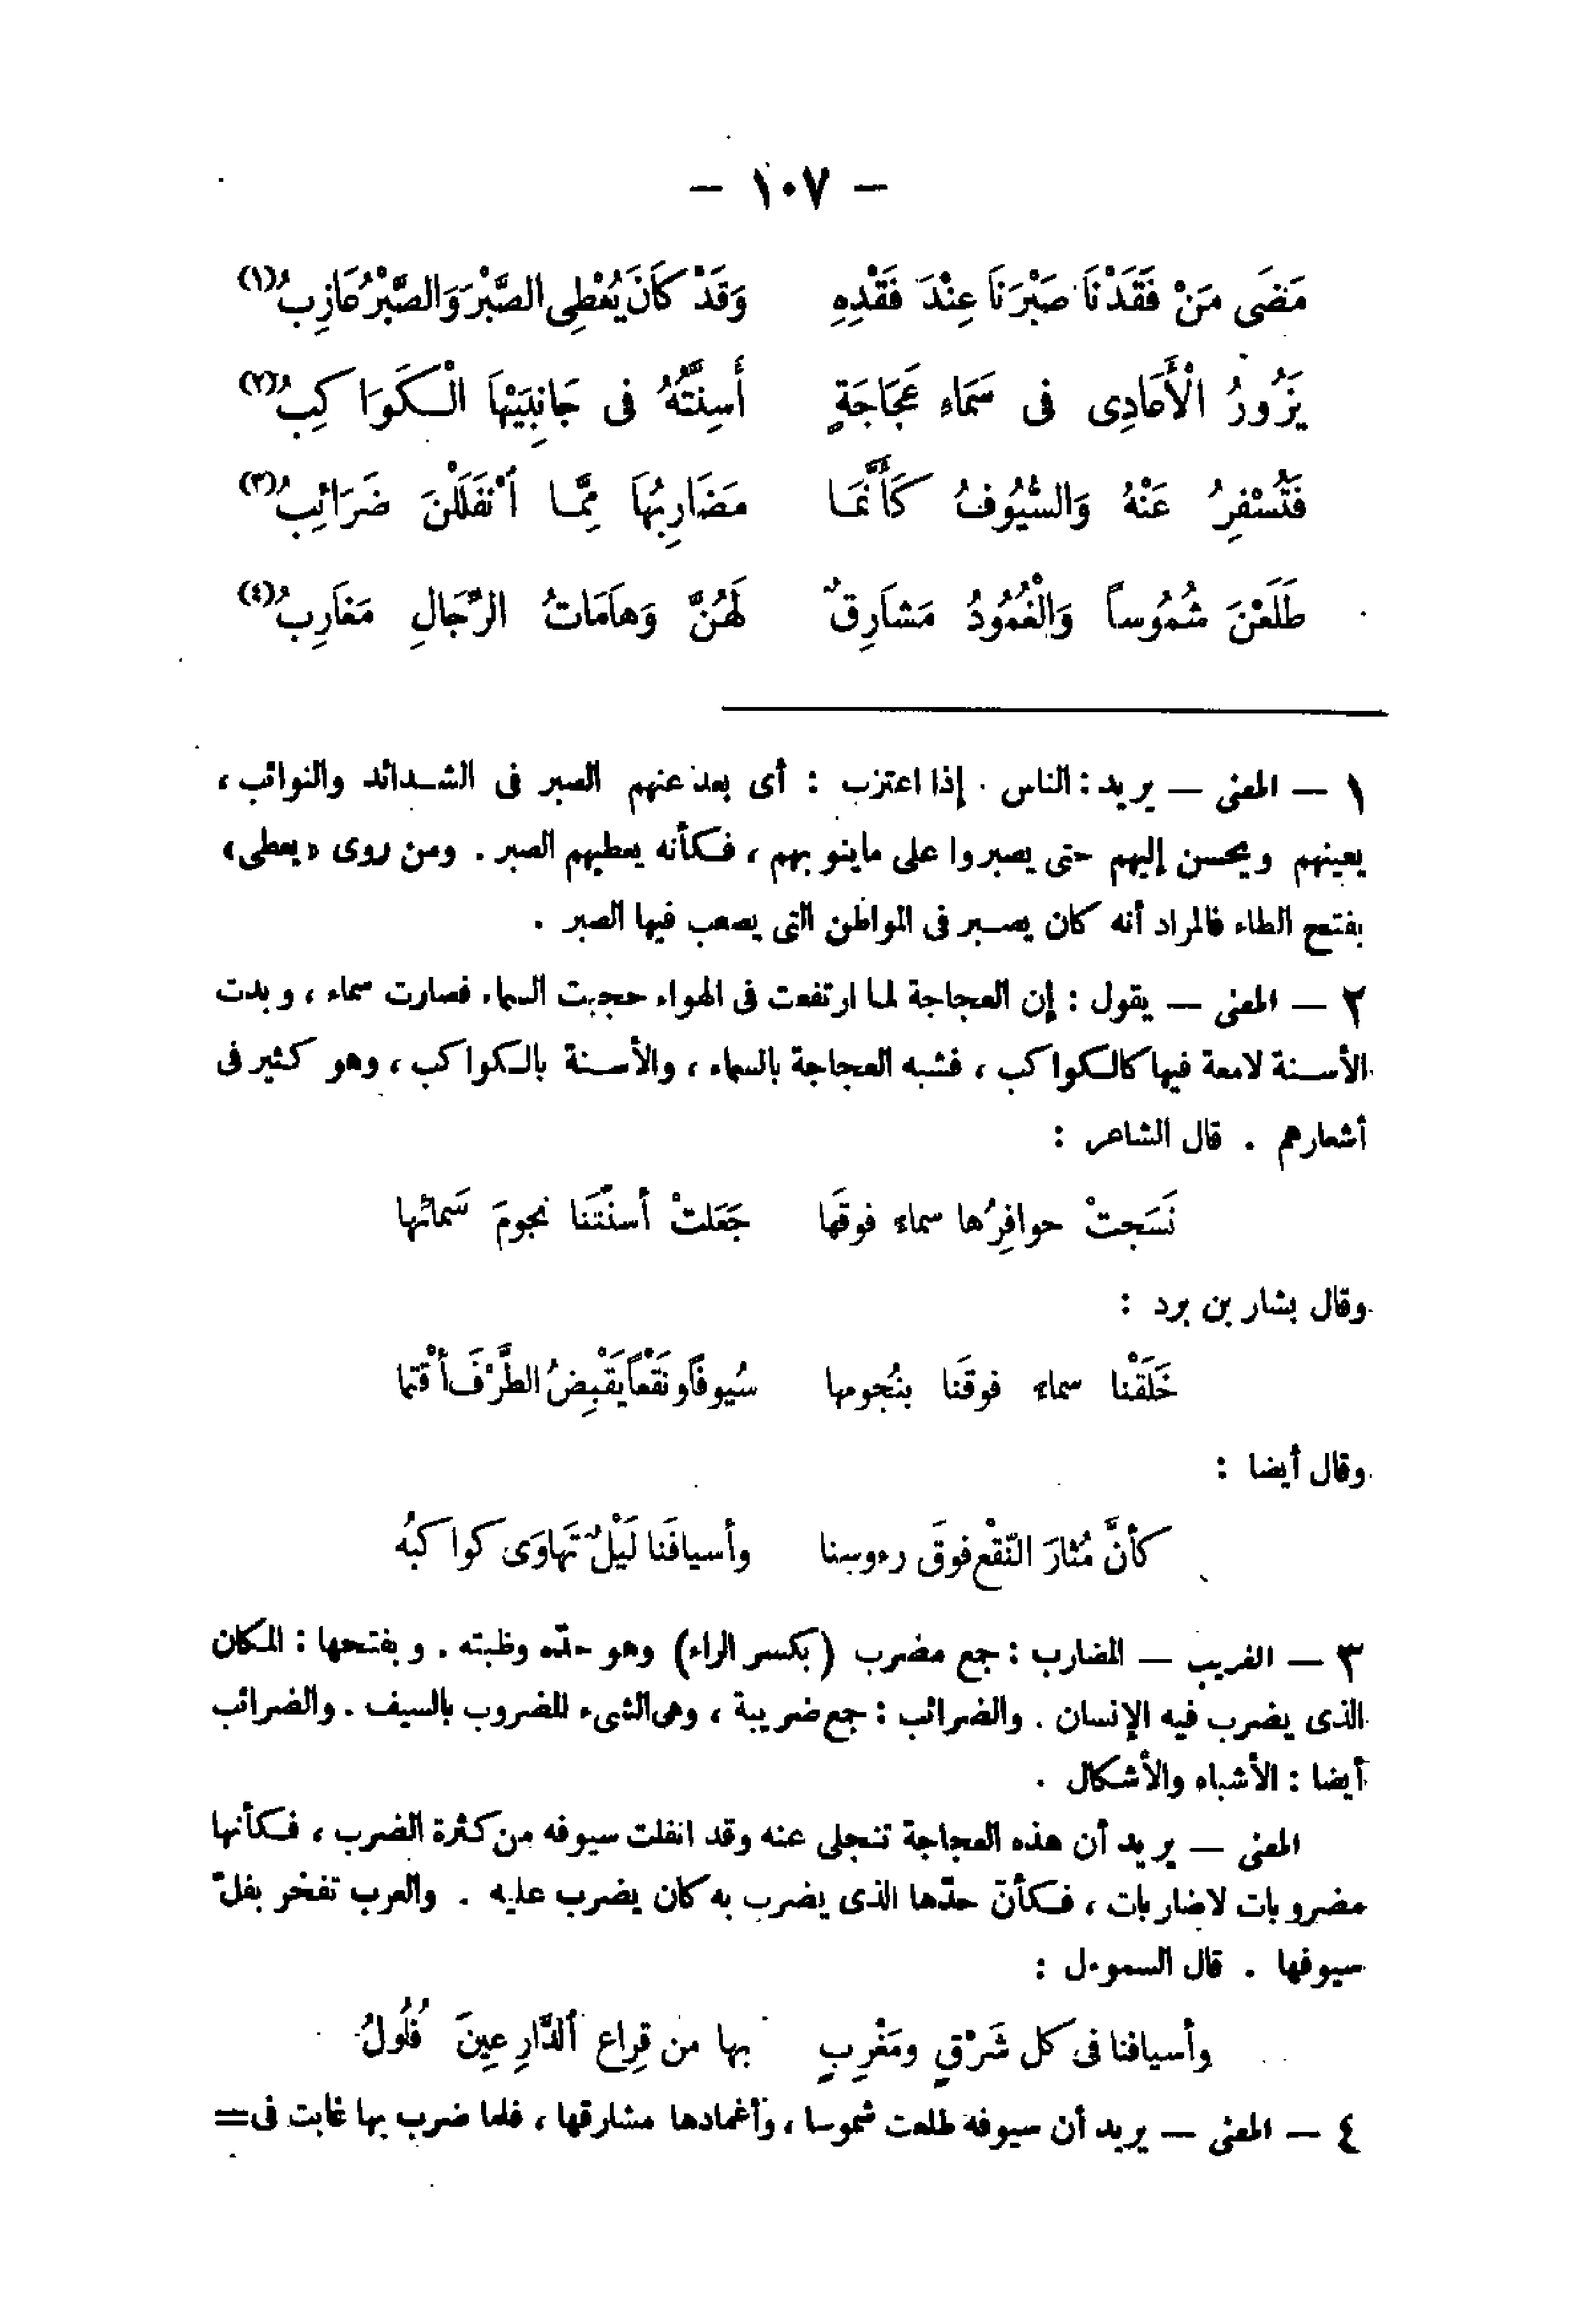 — ١٠٧ —
مَضَى مَنْ فَقَدْنَا صَبْرَنَا عِنْدَ فَقْدِهِ وَقَدْ كَانَ يُعْطِى الصَّبْرَ وَالصَّبْرُ عَازِبُ(١)
يَزُورُ الْأَعَادِى فى سَمَاءِ عَجَاجَةٍ أَسِنَّتُهُ فى جَانِبَيْهَا الْكَوَاكِبُ(٢)
فَتُسْفِرُ عَنْهُ وَالسُّيُوفُ كَأَنَّمَا مَضَارِبُهَا مِمَّا انْفَلَلْنَ ضَرَائِبُ(٣)
طَلَعْنَ شُمُوساً وَالْغُمُودُ مَشَارِقٌ لَهُنَّ وَهَامَاتُ الرِّجَالِ مَغَارِبُ(٤)
١ — المعنى — يريد : الناس . إذا اعتزب : أى بعد عنهم الصبر فى الشدائد والنوائب ،
يعينهم ويحسن إليهم حتى يصبروا على ماينوبهم ، فكأنه يعطيهم الصبر . ومن روى « يعطى »
بفتح الطاء فالمراد أنه كان يصبر فى المواطن التى يصعب فيها الصبر .
٢ — المعنى — يقول : إن العجاجة لما ارتفعت فى الهواء حجبت السماء فصارت سماء ، وبدت
الأسنة لامعة فيها كالكواكب ، فشبه العجاجة بالسماء ، والأسنة بالكواكب ، وهو كثير فى
أشعارهم . قال الشاعر :
نَسَجتْ حوافِرُها سماء فوقَها جَعَلتْ أسنَّتَنَا نجومَ سَمائها
وقال بشار بن برد :
خَلَقْنا سماء فوقَنا بنُجومها سُيوفًا ونَقْعًا يَقْبِضُ الطَّرْفَ أقْتما
وقال أيضا :
كأنَّ مُثارَ النّقْع فوقَ رءوسنا وأسيافَنا لَيْلٌ تَهاوَى كواكبُه
٣ — الغريب — المضارب : جمع مضرب (بكسر الراء) وهو حدّه وظبته . وبفتحها : المكان
الذى يضرب فيه الإنسان . والضرائب : جمع ضريبة ، وهى الشىء المضروب بالسيف . والضرائب
أيضا : الأشباه والأشكال .
المعنى — يريد أن هذه العجاجة تنجلى عنه وقد انفلت سيوفه من كثرة الضرب ، فكأنها
مضروبات لاضاربات ، فكأنّ حدّها الذى يضرب به كان يضرب عليه . والعرب تفخر بفلّ
سيوفها . قال السموءل :
وأسيافنا فى كل شَرْقٍ ومَغْرِبٍ بها من قِراع الدَّارِعِينَ فُلُولُ
٤ — المعنى — يريد أن سيوفه طلعت شموسا ، وأغمادها مشارقها ، فلما ضرب بها غابت فى=